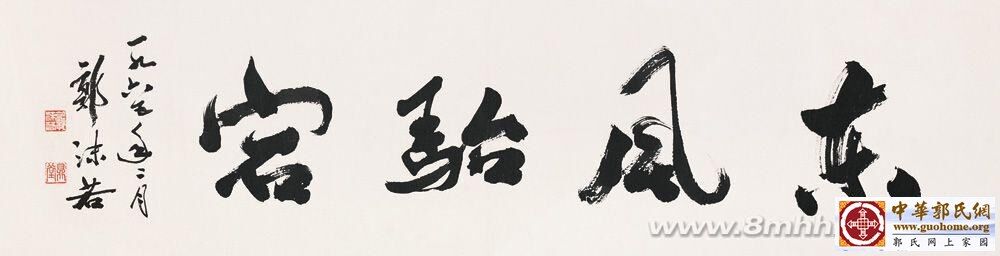 东风骀宕
一九六五年二月
郭沫若
www.8mhh
中華郭氏網
www.guohome.org
郭氏网上家园